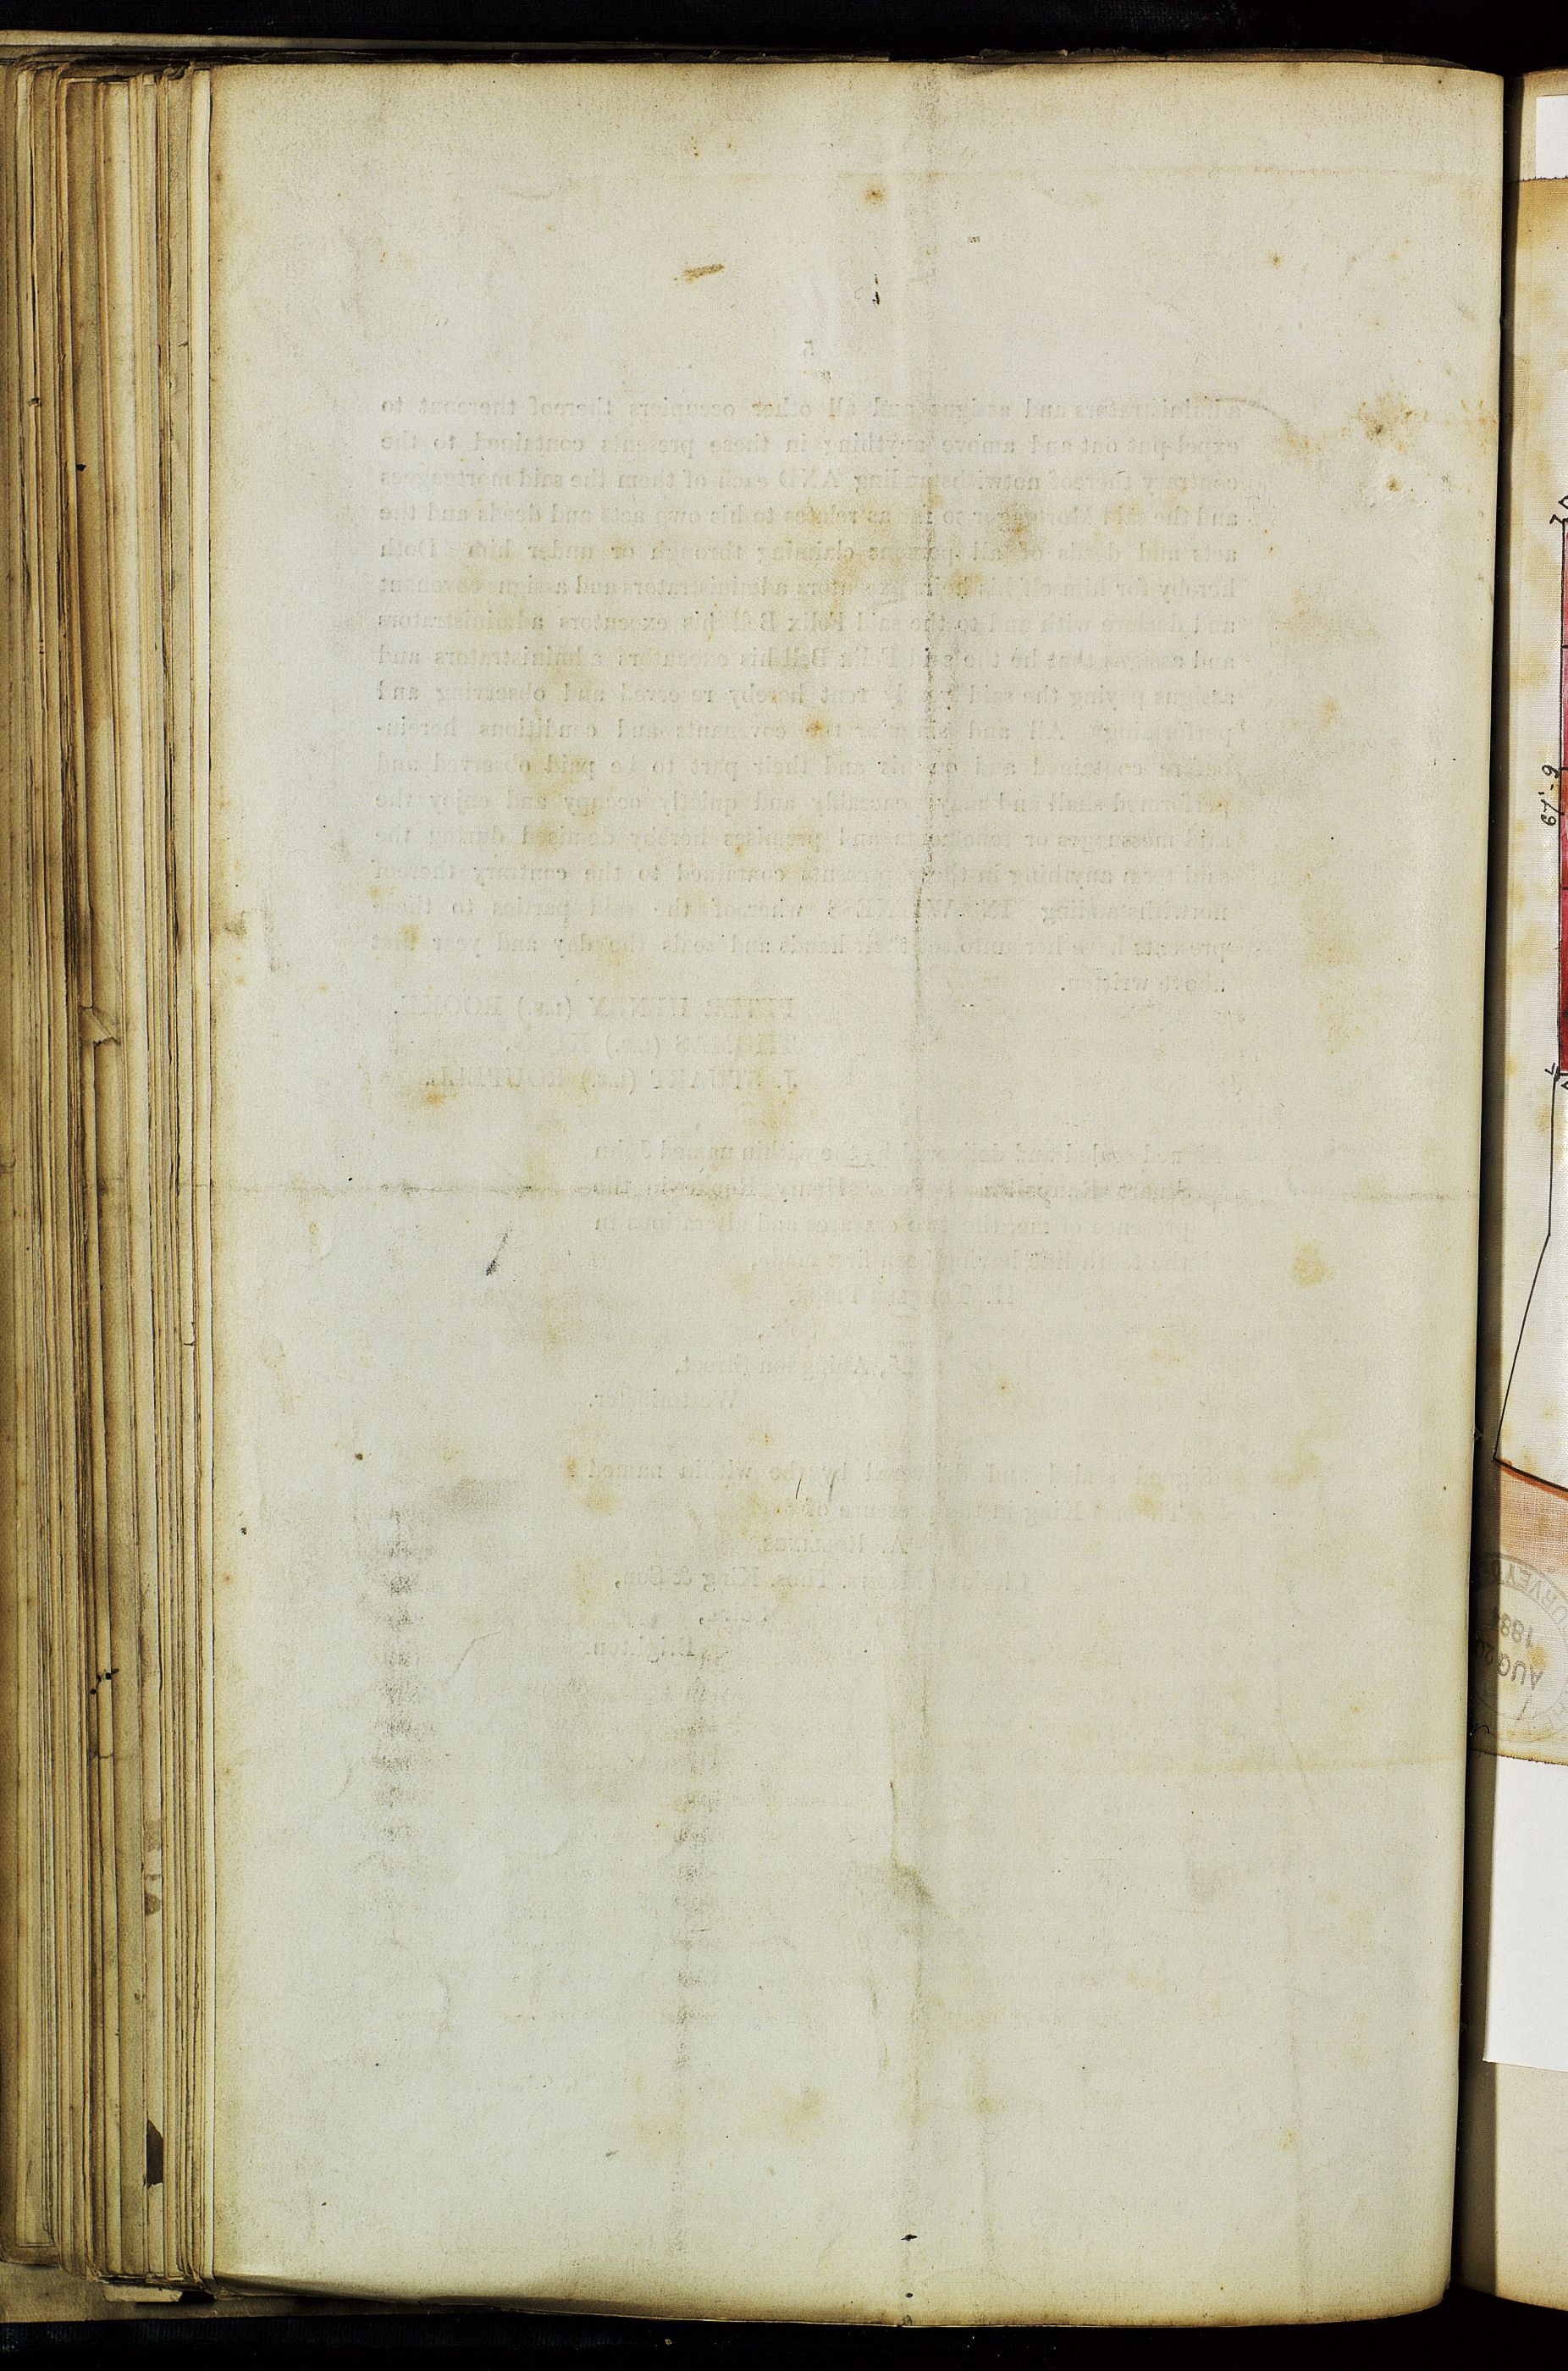 5
administrators and assigns and all other occupiers thereof thereout to
expel put out and amove anything in these presents contained to the
contrary thereof notwithstanding AND each of them the said mortgagees
and the said Mortgagor so far as relates to his own acts and deeds and the
acts and deeds of all persons claiming through or under him Doth
hereby for himself his heirs executors administrators and assigns covenant
and declare with and to the said Felix Bell his executors administrators
and assigns that he the said Felix Bell his executors administrators and
assigns paying the said yearly rent hereby reserved and observing and
performing All and singular the covenants and conditions herein-
before contained and on his and their part to be paid observed and
performed shall and may peaceably and quietly occupy and enjoy the
said messuages or tenements and premises hereby demised during the
said term anything in these presents contained to the contrary thereof
notwithstanding IN WITNESS whereof the said parties to these
presents have hereunto set their hands and seals the day and year first
above written.
PETER HENRY (L.S.) ROOKE.
THOMAS (L.S.) KING.
J. STUART (L.S.) ROUPELL.
Signed sealed and delivered by the within named John
Stuart Roupell and Peter Henry Rooke in the
presence of me the two erasures and alterations in
the line having been first made,
H.
Abingdon Street,
Westminster.
Signed sealed and delivered by the within named
Thomas King in the presence of
A. ROLLINGS,
Clerk to Messrs. Thos. King & Son,
Brighton.
67'.9
AUG 20